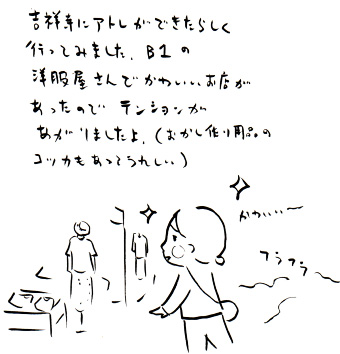 吉祥寺にアトレができたらしく
行ってみました。B1の
洋服屋さんでかわいいお店が
あったので テンションが
あがりましたよ。(おかし作り用品の
コッカもあってうれしい)
かわいい〜
フラフラ